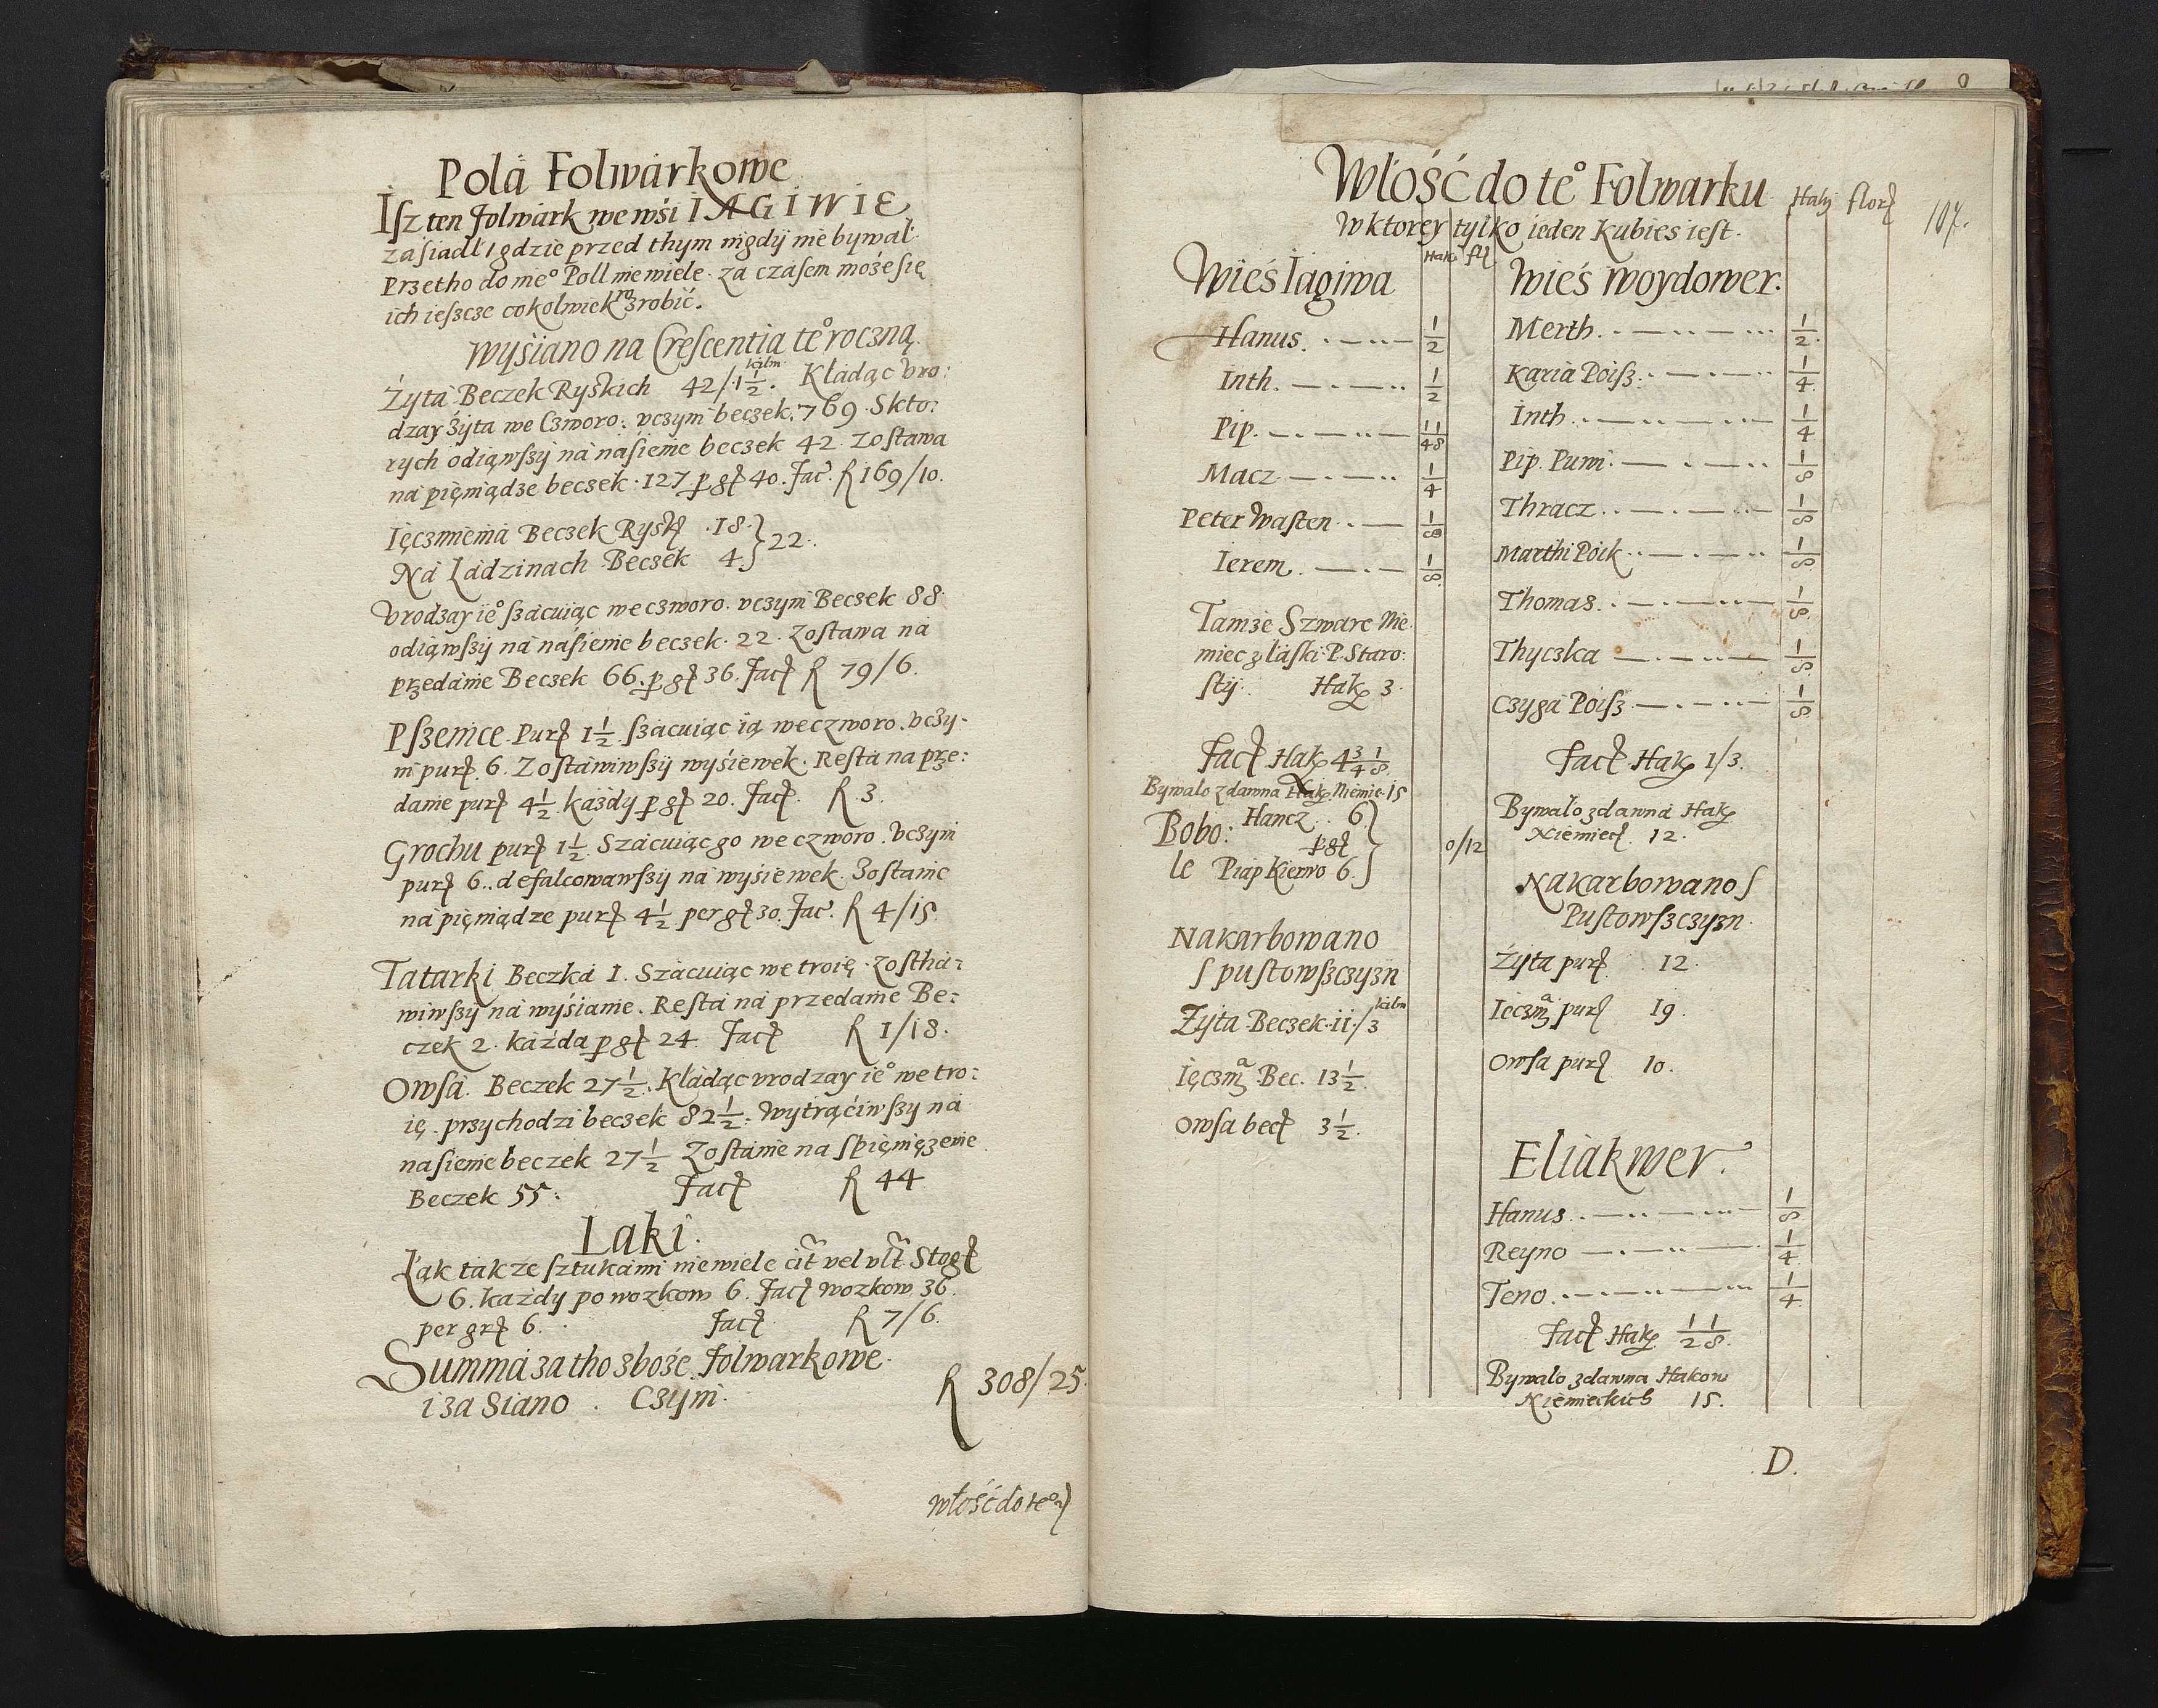 Pola Folwarkowe
Isz ten folwark we wśi IAGIWIE
zásiadł / gdzie przed thym nigdÿ nie bywał
Przetho do nie° Poll niewiele za czasem może się
ich ieszcze cokolwiek wzrobić.
Wysiano na Crescentia te° roczną
kilm
Żyta Beczek Ryskich 42/1½. Kładąc vro:
dzay żyta we Czworo: vczyni beczek. 769. Skto:
rych odiąwszÿ na nasienie beczek 42. Zostawa
na pięniądze beczek. 127 p gł 40. fac. R 169/10.
Ięczmienia Beczek Rysk 18.
22.
Na Ladzinach Beczek 4.
Vrodzay ie° szacuiąc we czworo. vczyni Beczek 88
odiąwszÿ na nasienie beczek. 22. Zostawa na
przedanie Beczek 66. p gł 36. fac R 79/6.
Pszenice Pur 1½ szacuiąc ią weczworo. vczy-
ni pur. 6. Zostawiwszÿ wyśiewek. Resta na prze:
danie pur 4½ każdy p gł 20. fac. R 3.
Grochu pur 1½. Szacuiąc go we czworo. vczyni
pur 6.. defalcowawszÿ na wysiewek. Zostanie
na pięniądze pur 4½ per gł 30. fac. R 4/15.
Tatarki Beczka 1. Szacuiąc we troię. Zostha-
wiwszÿ na wyśianie. Resta na przedanie Be:
czek 2. każda p gł 24 fac R 1/18.
Owsa. Beczek 27½. Kładąc vrodzay ie° we tro:
ię przychodzi beczek 82½. Wytrąćiwszy na
nasienie beczek 27½ Zostanie na spięniężenie
Beczek 55. fac R 44
Laki.
Łąk takze sztukami niewiele cit vel vlt. Stog
6. każdy po wozkow 6. fac wozkow 36.
per gr 6. fac R 7/6.
Summa za tho zboże folwarkowe
i za Siano. Czyni. R 308/25
włość do te°
Włość do te° Folwarku Hak flor
107.
W ktorey tylko ieden Kubies iest.
Hak fl
Wieś Iagiwa
Hanus. ½
Inth. ½
Pip. 1/4 1/8
Macz ¼
Peter Wasten ⅛
Ierem. ⅛
Tamże Szwarc Nie
miec z łaski P. Staro:
stÿ. Hak 3.
fac Hak 4 ¾ ⅛
Bywało zdawna Hak. Niemie. 15
Bobo: Hancz.. 6
p gł
0/12
le Piap Kierwo 6.
Nakarbowano
S pustowszczyzn
kilm
Żyta Beczek. 11./3
Ięczm Bec. 13½.
Owsa bec 3½.
Wieś Woydower.
Merth. ½
Karia Poisz. ¼
Inth ¼
Pip. Puwi. ⅛
Thracz ⅛
Marthi Poik ⅛
Thomas. ⅛
Thyczka ⅛
Czyga Poisz ⅛
fac. Hak 1/3.
Bywało zdawna Hak
Niemiec. 12.
Nakarbowano S
Pustowszczyzn.
Żyta pur 12.
Ięczm pur 19.
Owsa pur 10.
Eliakwer.
Hanus ⅛
Reyno ¼
Teno. ¼
fac Hak ½ ⅛.
Bywało zdawna Hakow
Niemieckich 15.
D.